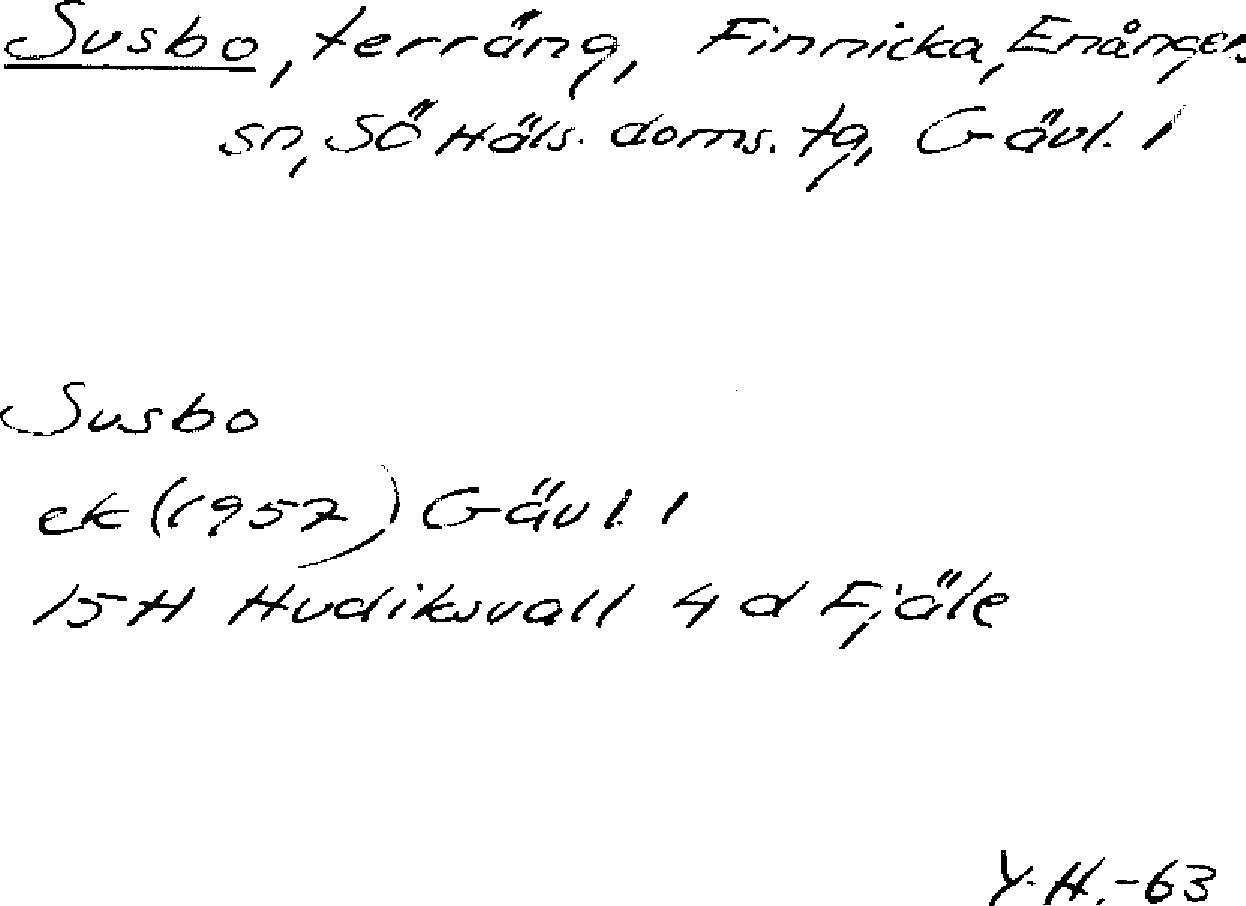 Susbo, terräng, Finnicka, Enångers
sn, Sö Häls. doms. tg, Gävl. l
Susbo
ek (1957) Gävl. l
15H Hudiksvall 4 d Fjäle
Y.H.-63